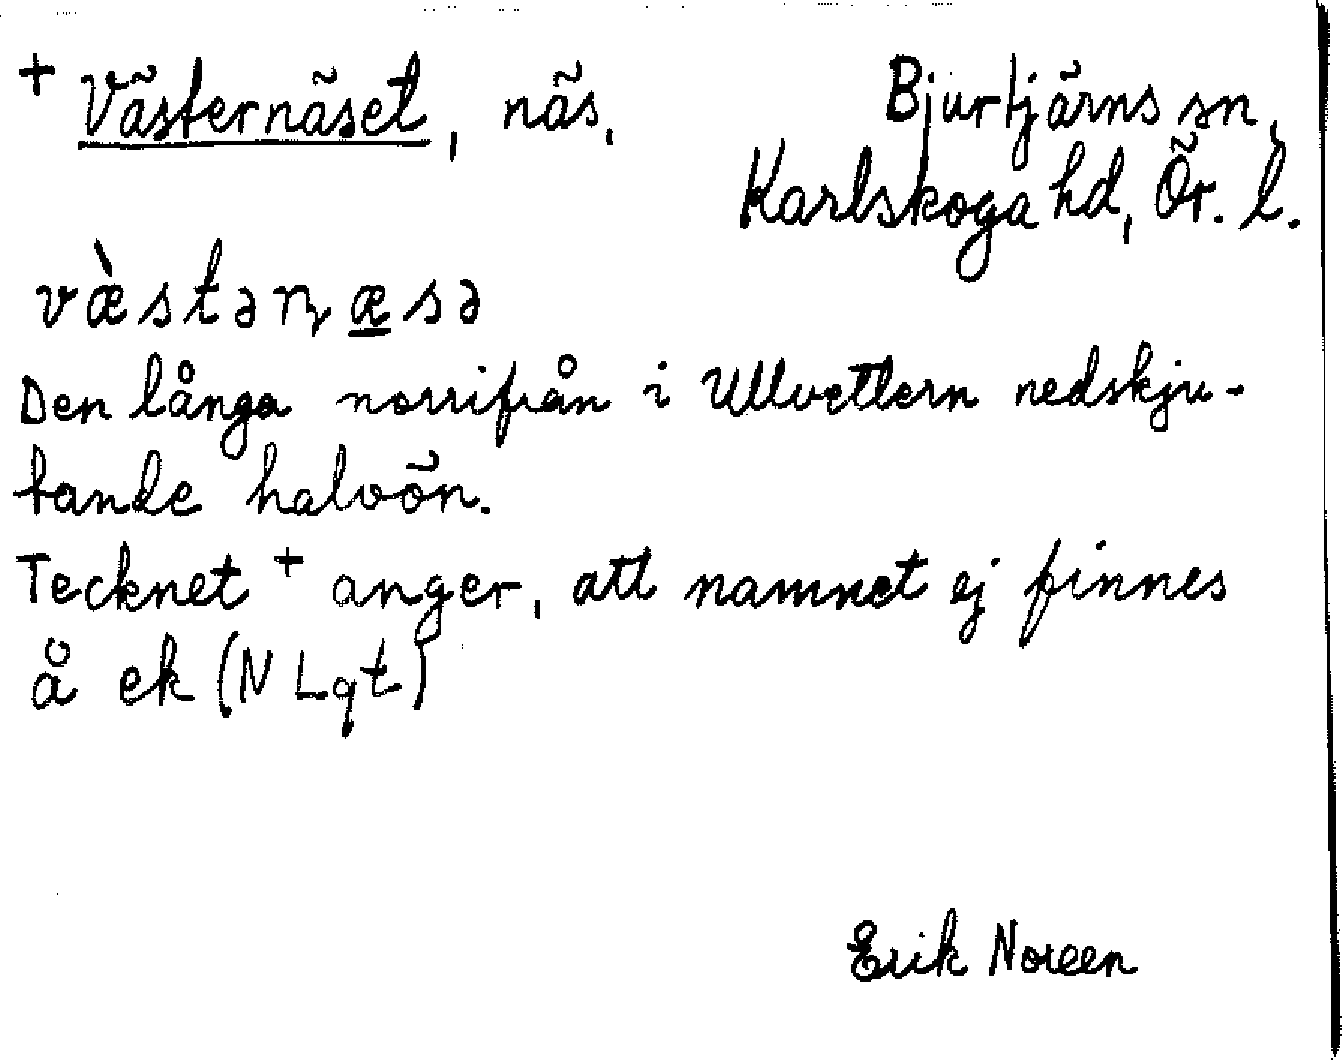 + Västernäset, näs, Bjurtjärns sn,
Karlskoga hd, Ör. l.
væ̀stəɳæ̲sə
Den långa norrifrån i Ullvettern nedskju-
tande halvön.
Tecknet + anger, att namnet ej finnes
å ek (N Lqt)
Erik Noreen